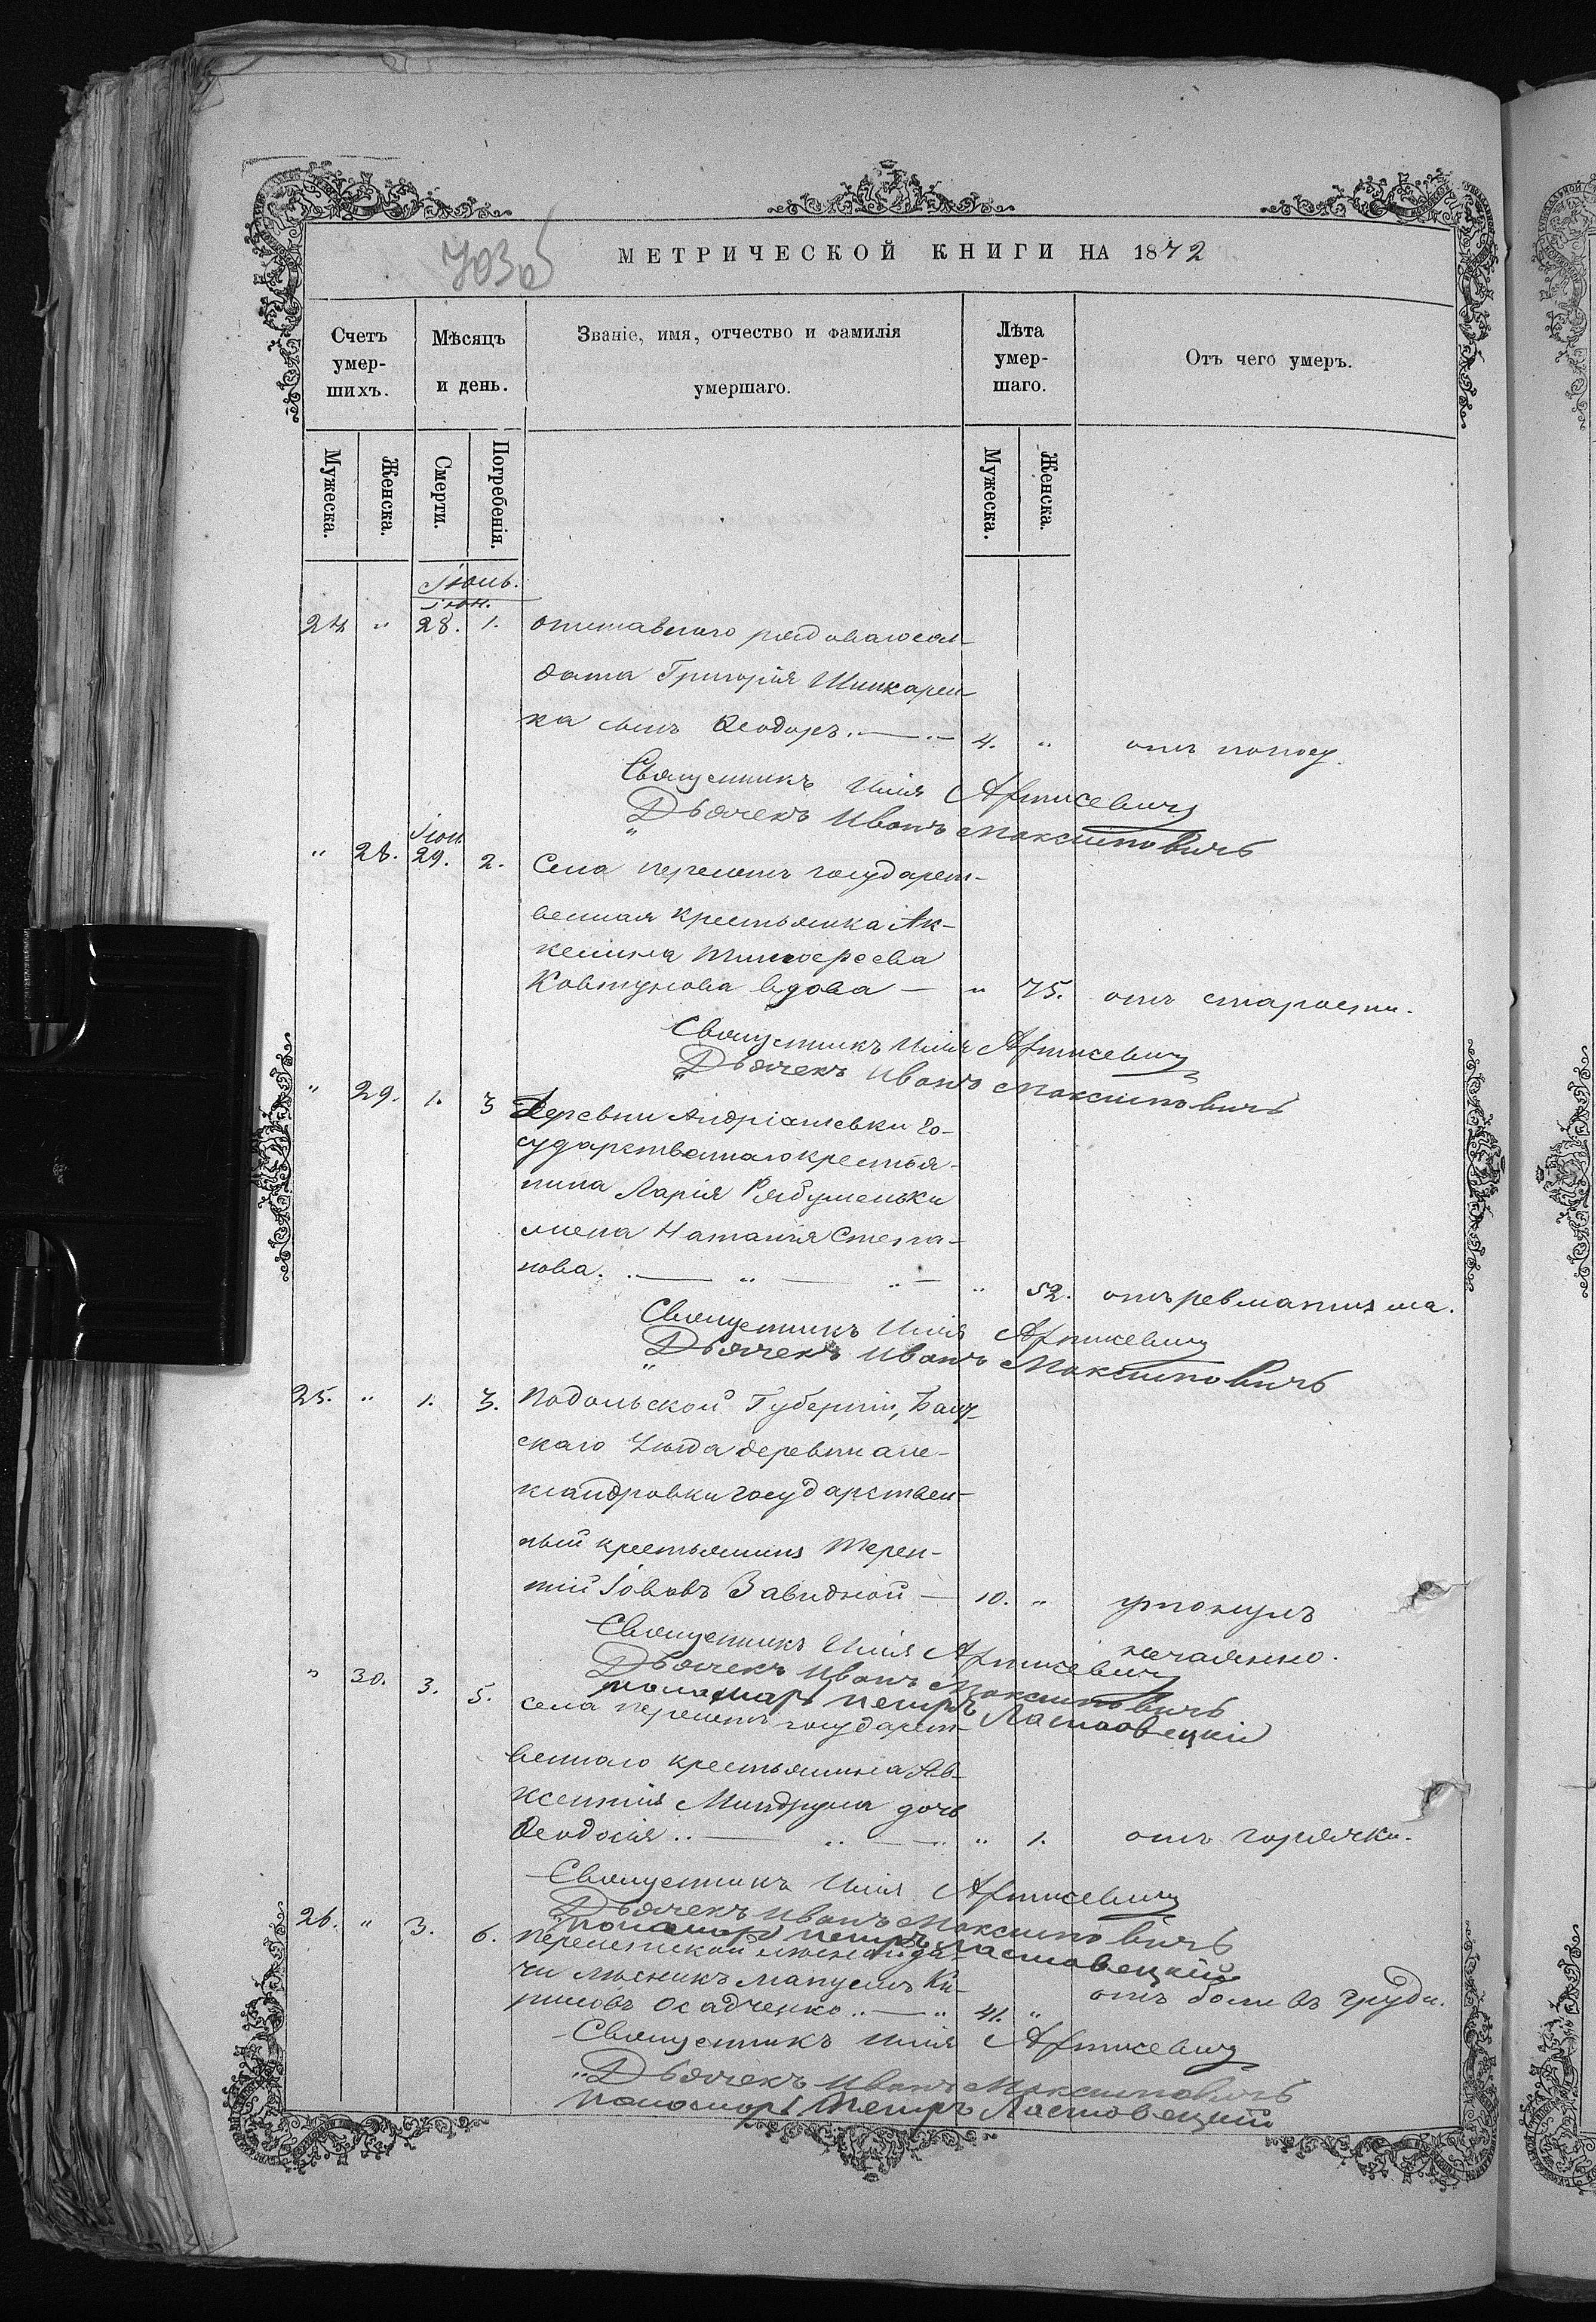 703об
МЕТРИЧЕСКОЙ КНИГИ НА 1872
Счетъ умершихъ.
Мѣсяцъ и день.
Званіе, имя, отчество и фамилія умершаго.
Лѣта умершаго.
Отъ чего умеръ.
Мужеска.
Женска.
Смерти.
Погребенія.
Мужеска.
Женска.
Іюль.
Іюн.
24 " 28. 1. отставного рядоваго сол-
дата Григорія Шинкарен-
ка сынъ Ѳеодоръ. 4. " отъ поносу.
Священникъ Илія
Дьячекъ Иванъ Максимовичъ
Іюн.
" 28. 29. 2. Села государст-
венная крестьянка Ак-
Тимоѳеева
Ковтунова вдова — " 75. отъ старости.
Священникъ Илія
Дьячекъ Иванъ Максимовичъ
" 29. 1. 3 Деревни Андріяшевки го-
сударственнаго крестья-
нина Ларія Рябушеньки
жена Наталія Степа-
нова. " 52. отъ ревматизма.
Священникъ Илія
Дьячекъ Иванъ Максимовичъ
25. " 1. 3. Подольской Губерніи, Балт-
скаго уѣзда деревни Але-
ксандровки государствен-
ный крестьянинъ Терен-
тій Іововъ Завидной — 10. " утонулъ
нечаянно.
Священникъ Илія
Дьячекъ Иванъ Максимовичъ
Пономарь Петръ Ластовецкій
" 30. 3. 5. села государст-
веннаго крестьянина Ав-
ксентія Миндрула дочь
Ѳеодосія .. " 1. отъ горячки.
Священникъ Илія
Дьячекъ Иванъ Максимовичъ
Пономарь Петръ Ластовецкій
26. " 3. 6. лѣсной да-
чи лѣсникъ Мануилъ Ки-
риловъ Осадченко .. 41. " отъ боли въ груди.
Священникъ Илія
Дьячекъ Иванъ Максимовичъ
Пономарь Петръ Ластовецкій